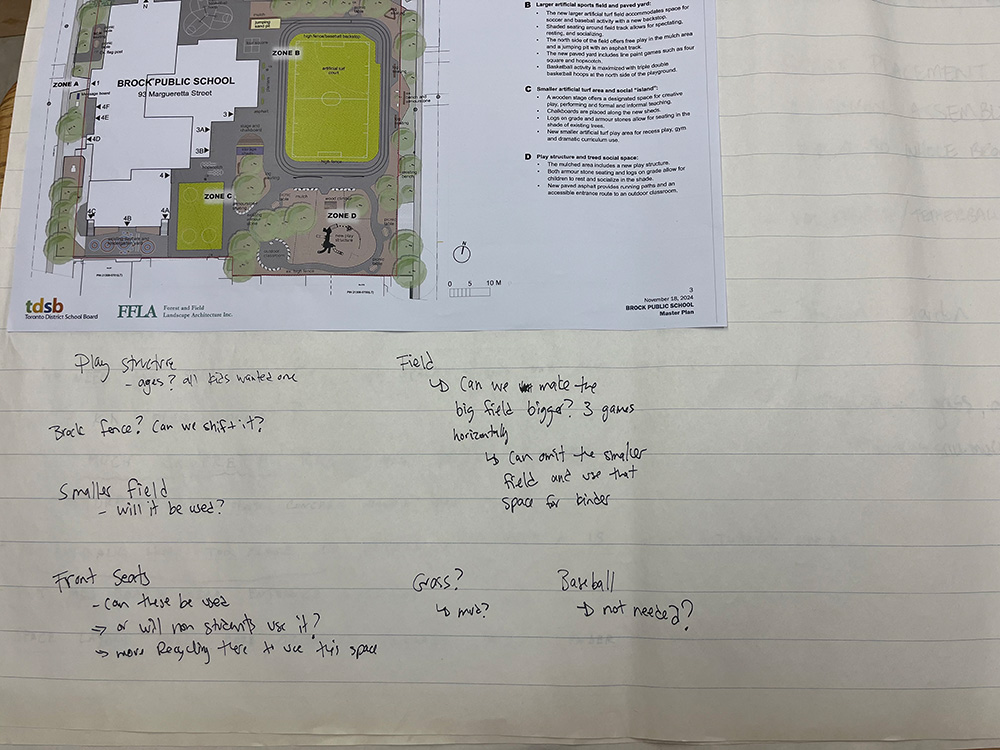 N
jumping sand pit
high fence/baseball backstop
ZONE B
artificial turf court
flag post
BROCK PUBLIC SCHOOL
93 Margueretta Street
ZONE A
1
message board
4F
4E
4D
3
3A
3B
asphalt
high fence
4
ZONE C
mulch
wood chips
ZONE D
new play structure
4C
4B
4A
N
0 5 10 M
B Larger artificial sports field and paved yard:
• The new larger artificial turf field accommodates space for
soccer and baseball activity with a new backstop.
• Shaded seating around field track allows for spectating,
resting, and socializing.
• The north side of the field offers free play in the mulch area
and a jumping pit with an asphalt track.
• The new paved yard includes line paint games such as four
square and hopscotch.
• Basketball activity is maximized with triple double
basketball hoops at the north side of the playground.
C Smaller artificial turf area and social "island":
• A wooden stage offers a designated space for creative
play, performing and formal and informal teaching.
• Chalkboards are placed along the new sheds.
• Logs on grade and armour stones allow for seating in the
shade of existing trees.
• New smaller artificial turf play area for recess play, gym
and dramatic curriculum use.
D Play structure and treed social space:
• The mulched area includes a new play structure.
• Both armour stone seating and logs on grade allow for
children to rest and socialize in the shade.
• New paved asphalt provides running paths and an
accessible entrance route to an outdoor classroom.
3
November 18, 2024
BROCK PUBLIC SCHOOL
Master Plan
tdsb
Toronto District School Board
FFLA
Forest and Field
Landscape Architecture Inc.
Play structure
- ages? all kids wanted one
Brock fence? Can we shift it?
Smaller field
- will it be used?
Front Seats
- Can these be used
→ or will non students use it?
→ move Recycling there to use this space
Field
↳ Can we make the
big field bigger? 3 games
horizontally
↳ Can omit the smaller
field and use that
space for binder
Grass?
↳ mud?
Baseball
↳ not needed?